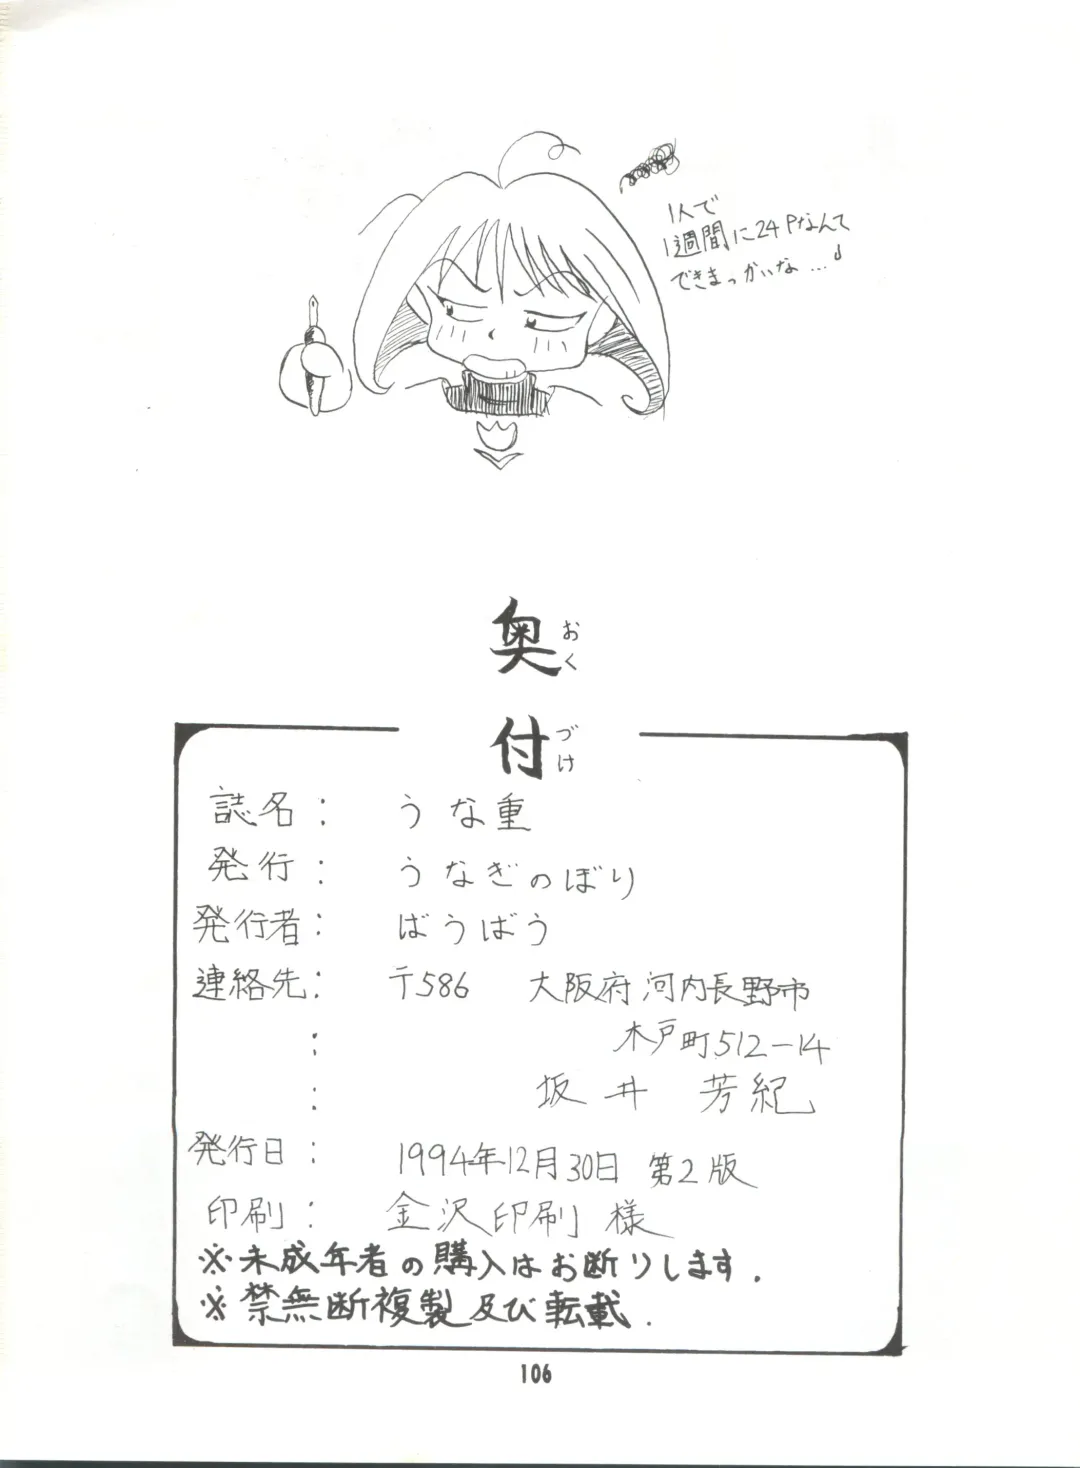 1人で
1週間に24Pなんて
できまっかいな…
奥付
おくづけ
誌名: うな重
発行: うなぎのぼり
発行者: ばうばう
連絡先: 〒586 大阪府河内長野市
: 木戸町512-14
: 坂井 芳紀
発行日: 1994年12月30日 第2版
印刷: 金沢印刷様
※未成年者の購入はお断りします.
※禁無断複製及び転載.
106